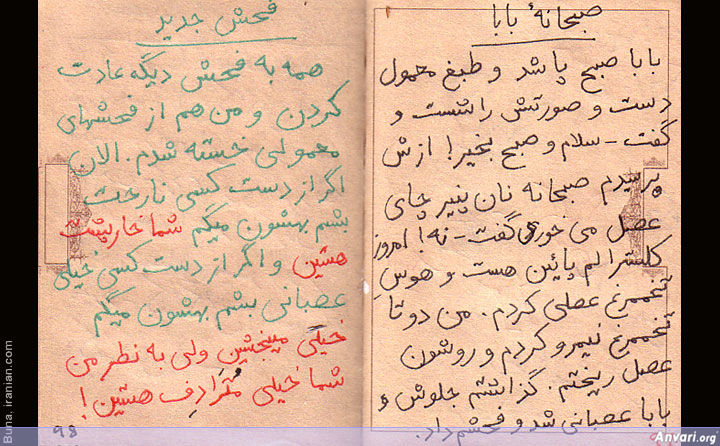 صبحانهٔ بابا
بابا صبح پاشد و طبغ معمول
دست و صورتش را شست و
گفت - سلام و صبح بخیر! ازش
پرسیدم صبحانه نان پنیر چای
عصل می خوری گفت - نه! امروز
کلسترالم پائین هست و هوسِ
تخممرغ عصلی کردم. من دو تا
تخممرغ نیمرو کردم و روشون
عصل ریختم. گذاشتم جلوش و
بابا عصبانی شد و فحشم داد.
فحش جدید
همه به فحش دیگه عادت
کردن و من هم از فحشهای
معمولی خسته شدم. الان
اگر از دست کسی ناراحت
بشم بهشون میگم شما خارپشت
هستین و اگر از دست کسی خیلی
عصبانی بشم بهشون میگم
خیلی میبخشین ولی به نظر من
شما خیلی مُتَرادِف هستین!
۹۸
Buna. iranian.com
Anvari.org